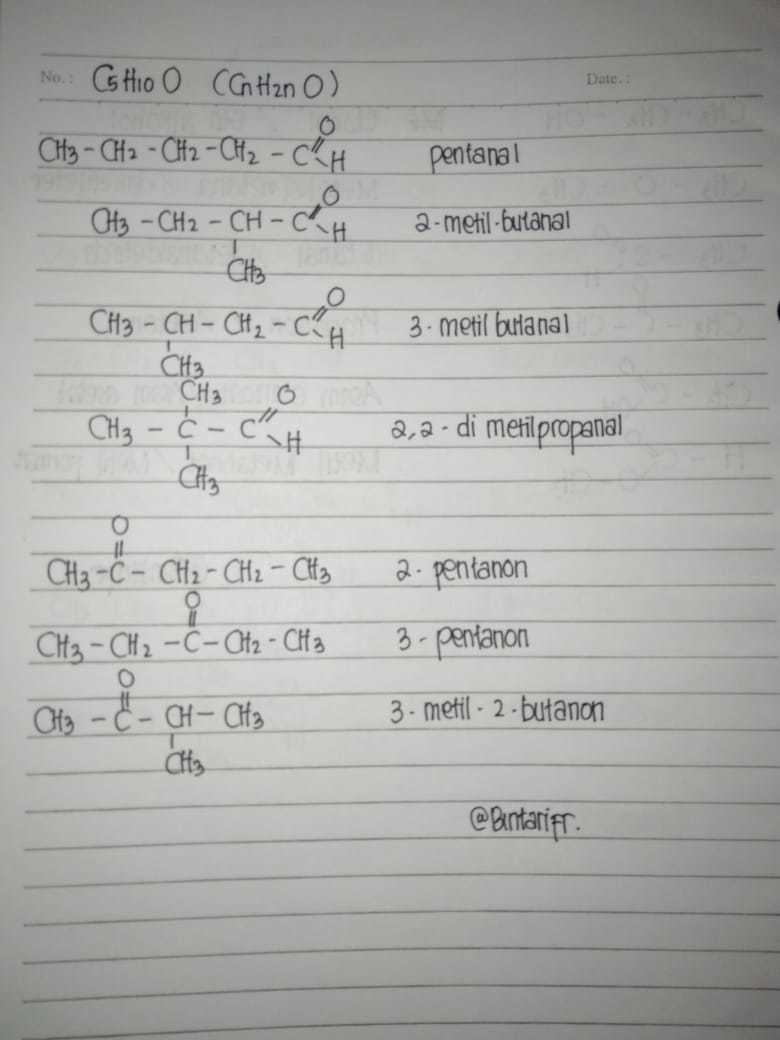 No.: C5H10O (CnH2nO) Date.:
O
CH3-CH2-CH2-CH2-C-H pentanal
O
CH3-CH2-CH-C-H 2-metil-butanal
CH3
O
CH3-CH-CH2-C-H 3-metil butanal
CH3
CH3 O
CH3-C-C-H 2,2-di metilpropanal
CH3
O
CH3-C-CH2-CH2-CH3 2-pentanon
O
CH3-CH2-C-CH2-CH3 3-pentanon
O
CH3-C-CH-CH3 3-metil-2-butanon
CH3